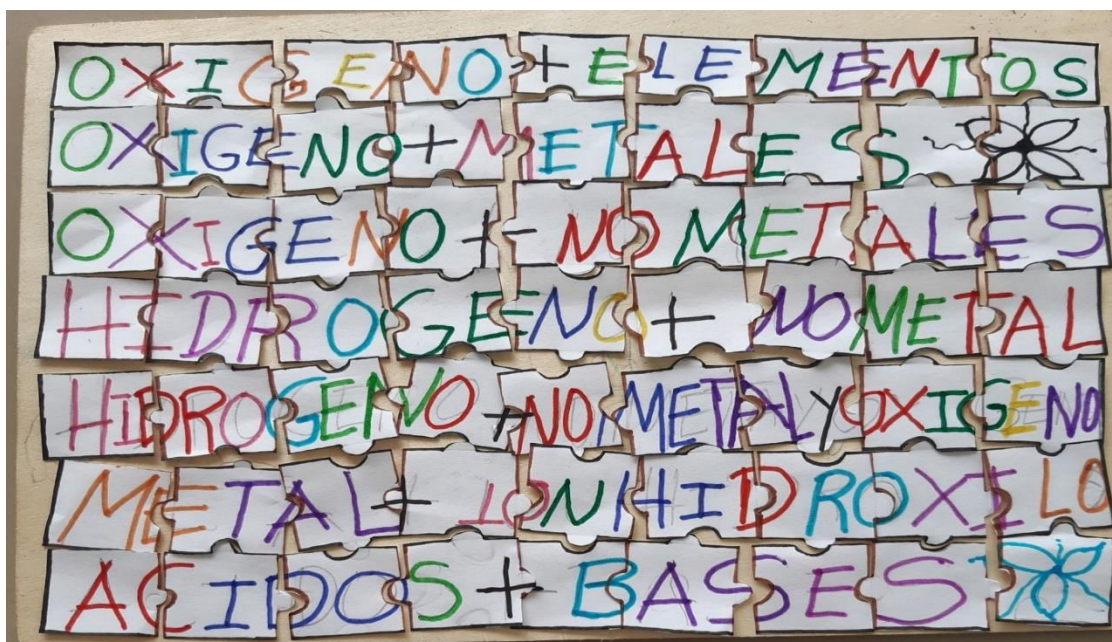 OXIGENO + ELEMENTOS
OXIGENO + METALES
OXIGENO + NO METALES
HIDROGENO + NO METAL
HIDROGENO + NO METAL Y OXIGENO
METAL + ION HIDROXILO
ACIDOS + BASES